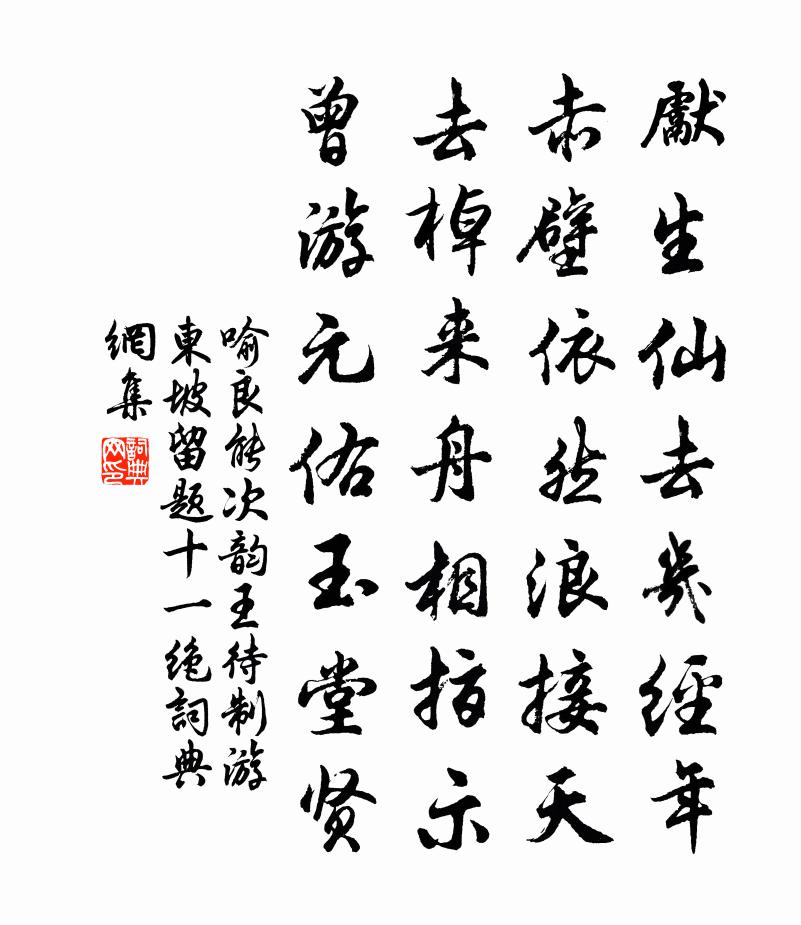 獻生仙去幾經年
赤壁依然浪接天
去棹来舟相指示
曾游元佑玉堂贤
喻良能次韵王待制游
東坡留题十一绝詞典
網集
詞典网印